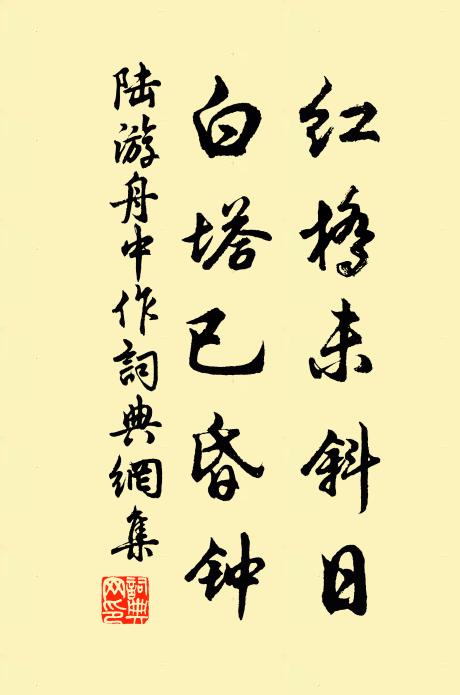 红橋未斜日
白塔已昏钟
陆游舟中作詞典網集
詞典
网印